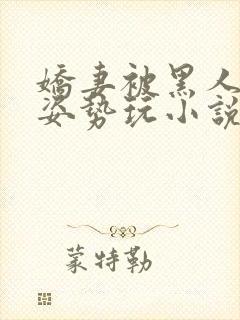 嬌妻被黑人
姿勢玩小說
蒙特勒